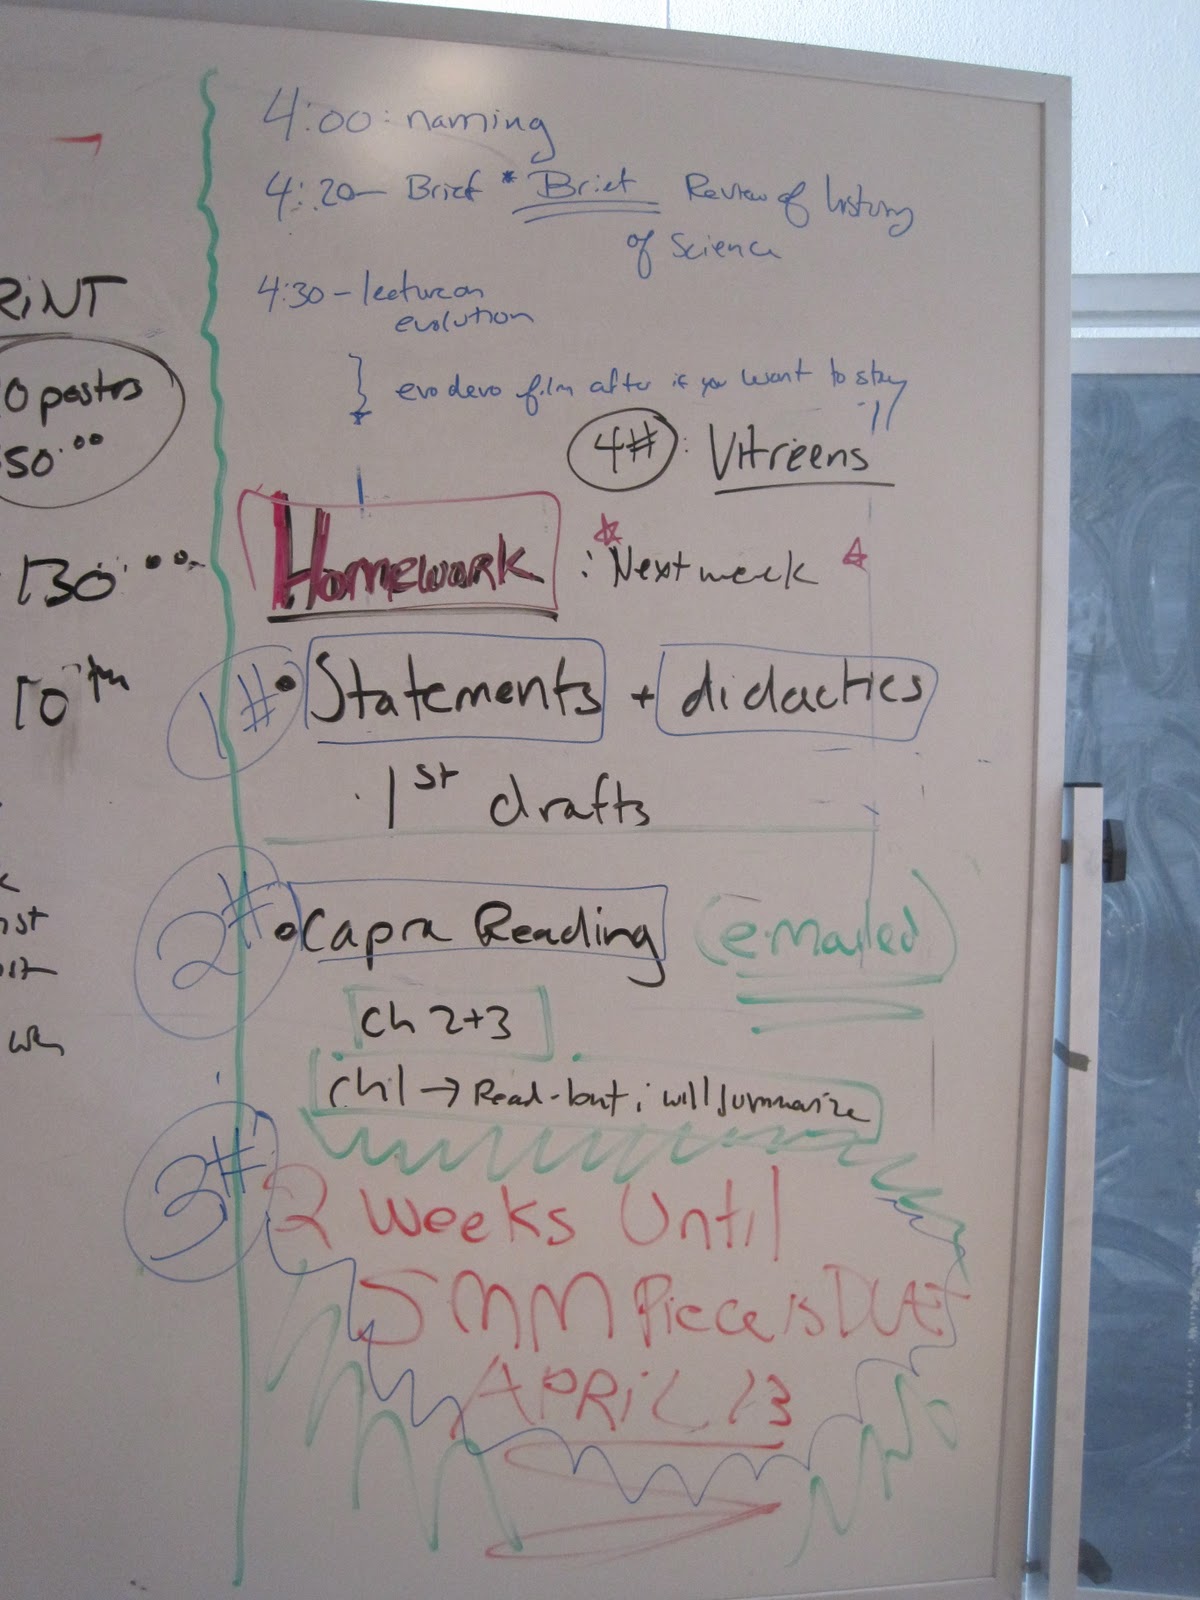 4:00: naming
4:20- Brief * Brief Review of history
of Science
4:30 - lecture on
evolution
evo devo film after if you want to stay
4#: Vitreens
Homework : Next week
1# • Statements + didactics
1st drafts
2# • Capra Reading (emailed)
ch 2+3
ch 1 → Read - but i will summarize
3# 2 weeks Until
SMM Piece is DUE
APRIL 13
RINT
0 posters
50.00
130.00
10th